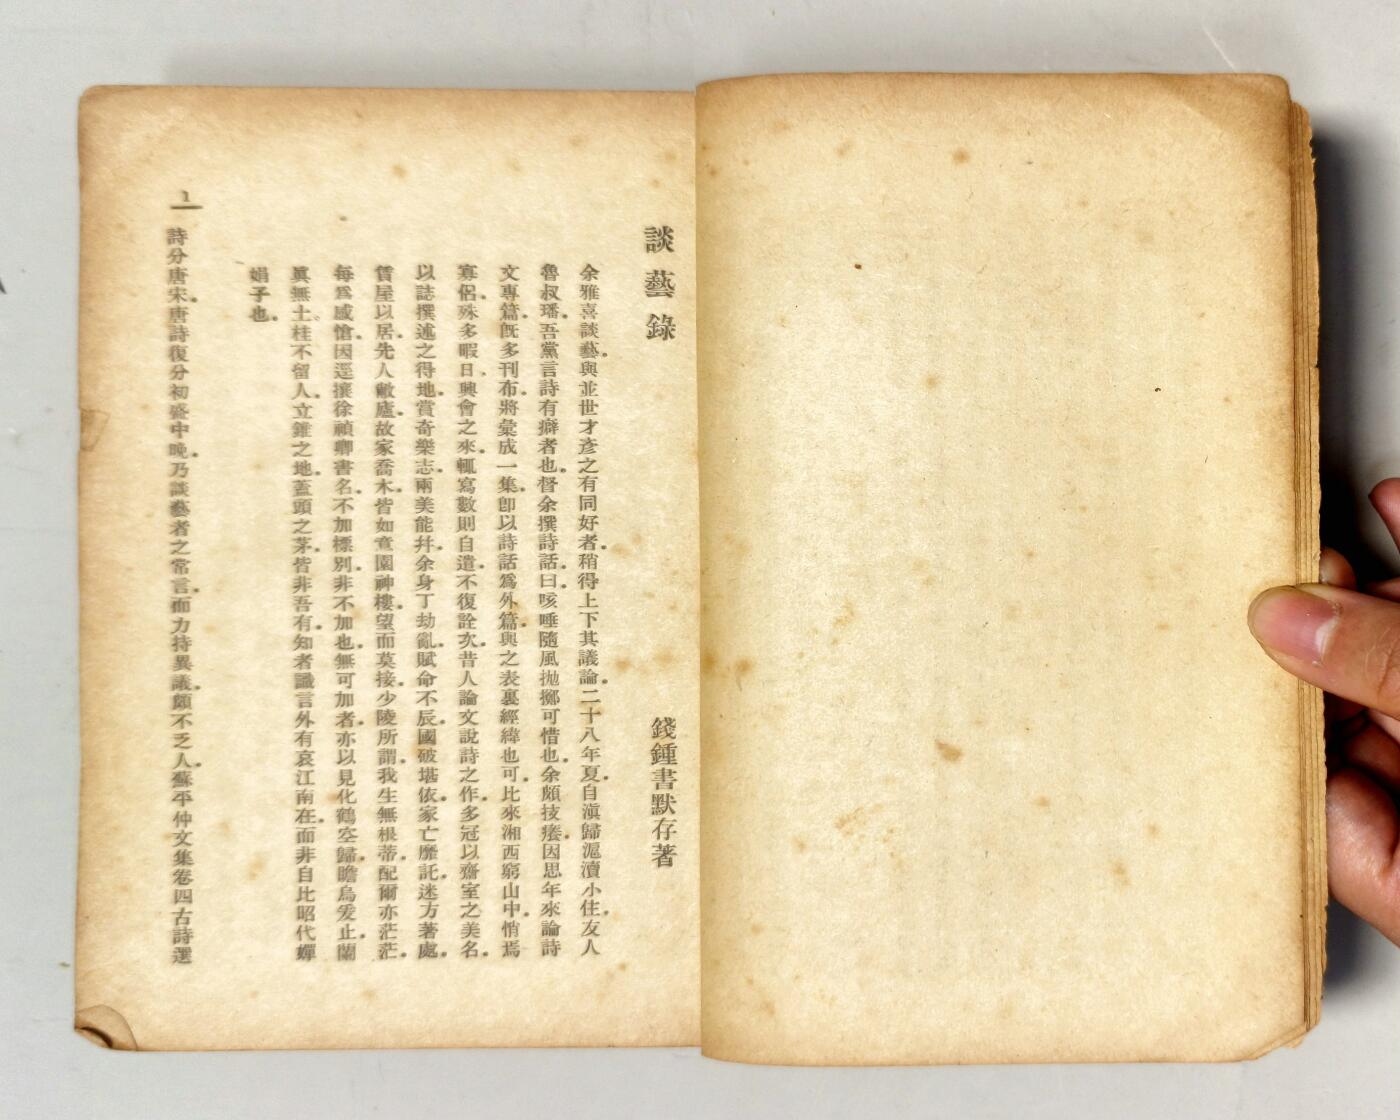 談藝錄
錢鍾書默存著
余雅喜談藝。與並世才彥之有同好者。稍得上下其議論。二十八年夏。自滇歸滬瀆小住。友人
魯叔璠。吾黨言詩有癖者也。督余撰詩話。曰。咳唾隨風拋擲可惜也。余頗技癢。因思年來論詩
文專篇。既多刊布。將彙成一集。卽以詩話爲外篇。與之表裏經緯也可。比來湘西窮山中。悄焉
寡侶。殊多暇日。興會之來。輒寫數則自遣。不復詮次。昔人論文說詩之作。多冠以齋室之美名。
以誌撰述之得地。賞奇樂志。兩美能幷。余身丁劫亂。賦命不辰。國破堪依。家亡靡託。迷方著處。
賃屋以居。先人敝廬。故家喬木。皆如意園神樓。望而莫接。少陵所謂。我生無根蒂。配爾亦茫茫。
每爲感愴。因逕攘徐禎卿書名。不加標別。非不加也。無可加者。亦以見化鶴空歸。瞻烏爰止。蘭
眞無土。桂不留人。立錐之地。蓋頭之茅。皆非吾有。知者識言外有哀江南在。而非自比昭代嬋
娟子也。
1
詩分唐宋。唐詩復分初盛中晚。乃談藝者之常言。而力持異議。頗不乏人。蘇平仲文集卷四古詩選